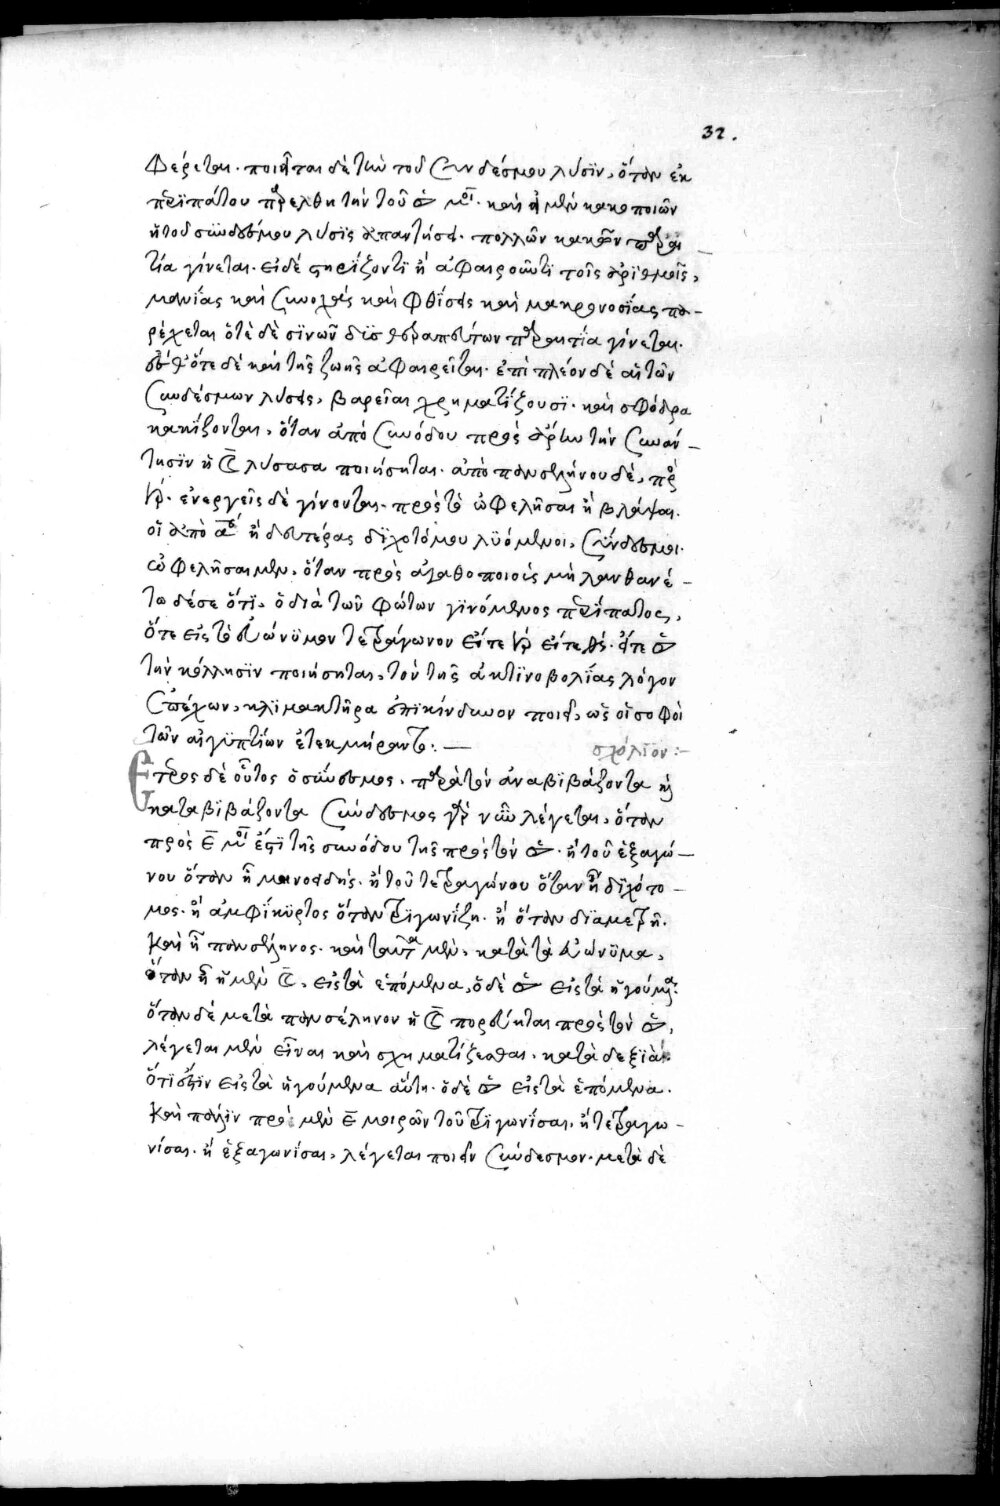 32.
φέρεται. ποιεῖται δὲ τὴν τοῦ συνδέσμου λύσϊν, ὅταν ἐκ
περϊπάτου παρέλθη τὴν τοῦ ☉ μοῖ. καὶ ἡ μὲν κακοποιῶν
ἡ τοῦ συνδέσμου λύσϊς ἀπαντήσει. πολλῶν κακῶν παραι
τία γίνεται. εἰ δὲ στηρίζοντϊ ἢ ἀφαιροῦντϊ τοῖς ἀρϊθμοῖς,
μανίας καὶ σκυολϊὰς καὶ φθίσεις καὶ μακρονοσίας πα-
ρέχεται ὁτὲ δὲ σϊνῶν δϊὸ θεραπεύτων παραιτία γίνεται.
ἔσθ' ὅτε δὲ καὶ τῆς ζωῆς ἀφαιρεῖται. ἐπὶ πλέον δὲ αἱ τῶν
συνδέσμων λύσεις, βαρεῖαι χρηματίζουσϊ. καὶ σφόδρα
κακίζονται, ὅταν ἀπὸ συνόδου πρὸς ἄρην τὴν συνάν-
τησϊν ἡ ☾ λύσασα ποιήσηται. ἀπὸ πανσελήνου δὲ, πρὸς
♄. ἐνεργεῖς δὲ γίνονται. πρὸς τὸ ὠφελῆσαι ἢ βλάψαι.
οἱ ἀπὸ α ἢ δευτέρας δϊχοτόμου λϋόμενοι, σύνδεσμοι.
ὠφελῆσαι μὲν, ὅταν πρὸς ἀγαθοποιοὺς μὴ λανθανέ-
τω δέ σε ὅτϊ, ὁ διὰ τῶν φώτων γϊνόμενος περίπατος,
ὅτε εἰς τὸ εὐώνϋμον τετράγωνον εἴτε ♄ εἴτε εἴτε ☉
τὴν κόλλησϊν ποιήσηται, τὸν τῆς ἀκτϊνοβολίας λόγον
ἐπέχων, κλϊμακτῆρα ἐπϊκίνδυνον ποιεῖ, ὡς οἱ σοφοὶ
τῶν αἰγϋπτίων ἐτεκμήραντο. —
σχόλϊον:-
Ἕτερος δὲ οὗτος ὁ σύνδεσμος. παρὰ τὸν ἀναβϊβάζοντα ἢ
καταβϊβάζοντα σύνδεσμος γὰρ νῦν λέγεται, ὅταν
πρὸς ε μοῖ ἐστϊ τῆς συνόδου τῆς πρὸς τὸν ☉. ἢ τοῦ ἑξαγώ-
νου ὅταν ἦ μηνοειδής. ἢ τοῦ τετραγώνου ὅταν ἦ δϊχότο-
μος. ἢ ἀμφίκϋρτος ὅταν τρϊγωνίζη. ἢ ὅταν δϊαμετρῆ.
καὶ ἦ πανσέληνος. καὶ ταῦτα μὲν, κατὰ τὰ εὐώνϋμα,
ὅταν ἦ ἡ μὲν ☾, εἰς τὰ ἑπόμενα, ὁ δὲ ☉ εἰς τὰ ἡγούμενα.
ὅταν δὲ μετὰ πανσέληνον ἡ ☾ πορεύηται πρὸς τὸν ☉,
λέγεται μὲν εἶναι καὶ σχηματίζεσθαι. κατὰ δεξϊὰν
ὅτϊ ἐστϊν εἰς τὰ ἡγούμενα αὕτη. ὁ δὲ ☉ εἰς τὰ ἑπόμενα.
καὶ πάλϊν πρὸ μὲν ε μοιρῶν τοῦ τρϊγωνίσαι, ἢ τετραγω-
νίσαι. ἢ ἑξαγωνίσαι, λέγεται ποιεῖν σύνδεσμον. μετὰ δὲ